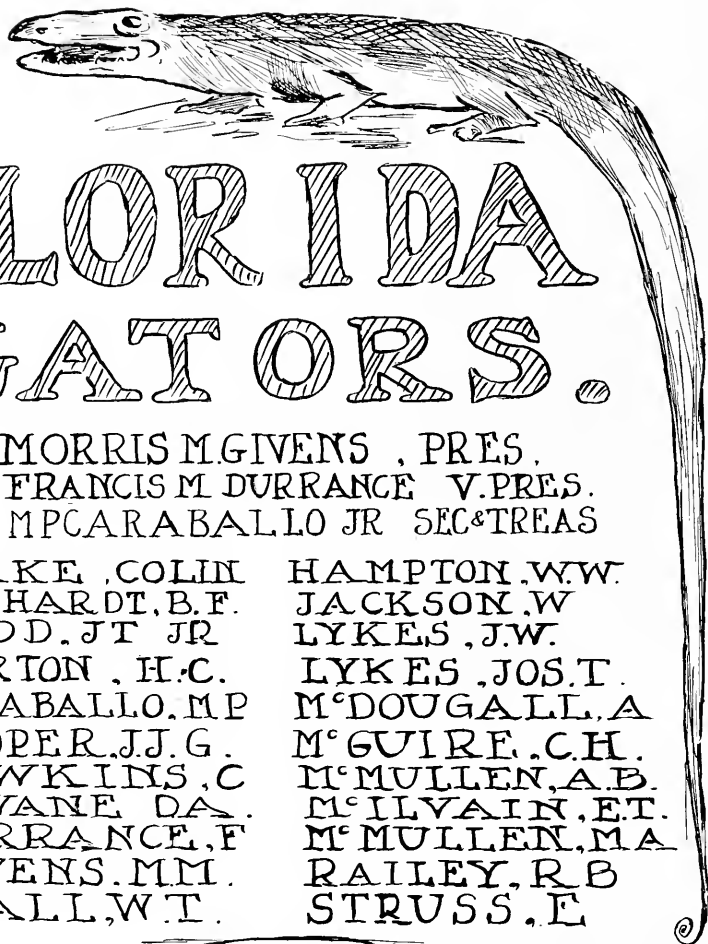 LORIDA
GATORS.
MORRIS M.GIVENS , PRES.
FRANCIS M DURRANCE V.PRES.
MPCARABALLO JR SEC&TREAS
AKE ,COLIN
HARDT, B.F.
OD. JT JR
RTON , H.C.
ABALLO. M P
OPER. J.J.G.
WKINS , C
VANE DA.
RRANCE, F
VENS. M.M.
ALL, W.T.
HAMPTON. W.W.
JACKSON. W
LYKES , J.W.
LYKES , JOS. T.
McDOUGALL, A
McGUIRE , C.H.
McMULLEN, A.B.
McILVAIN, E.T.
McMULLEN, M A
RAILEY, R B
STRUSS , E